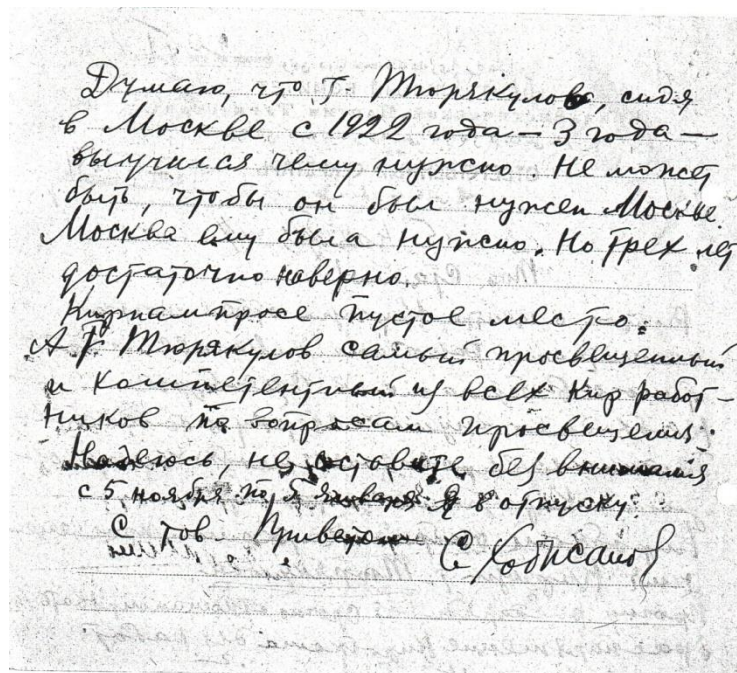 Думаю, что т. Тюрякулов, сидя
в Москве с 1922 года – 3 года –
выучился чему нужно. Не может
быть, чтобы он был нужен Москве.
Москва ему была нужно. Но трех лет
достаточно наверно.
Кирнампросе пустое место.
А т. Тюрякулов самый просвещенный
и компетентный из всех Кир работ-
ников по вопросам просвещения.
Надеюсь, не оставите без внимания
с 5 ноября по 5 января я в отпуску.
С тов Приветом
С. Ходжанов